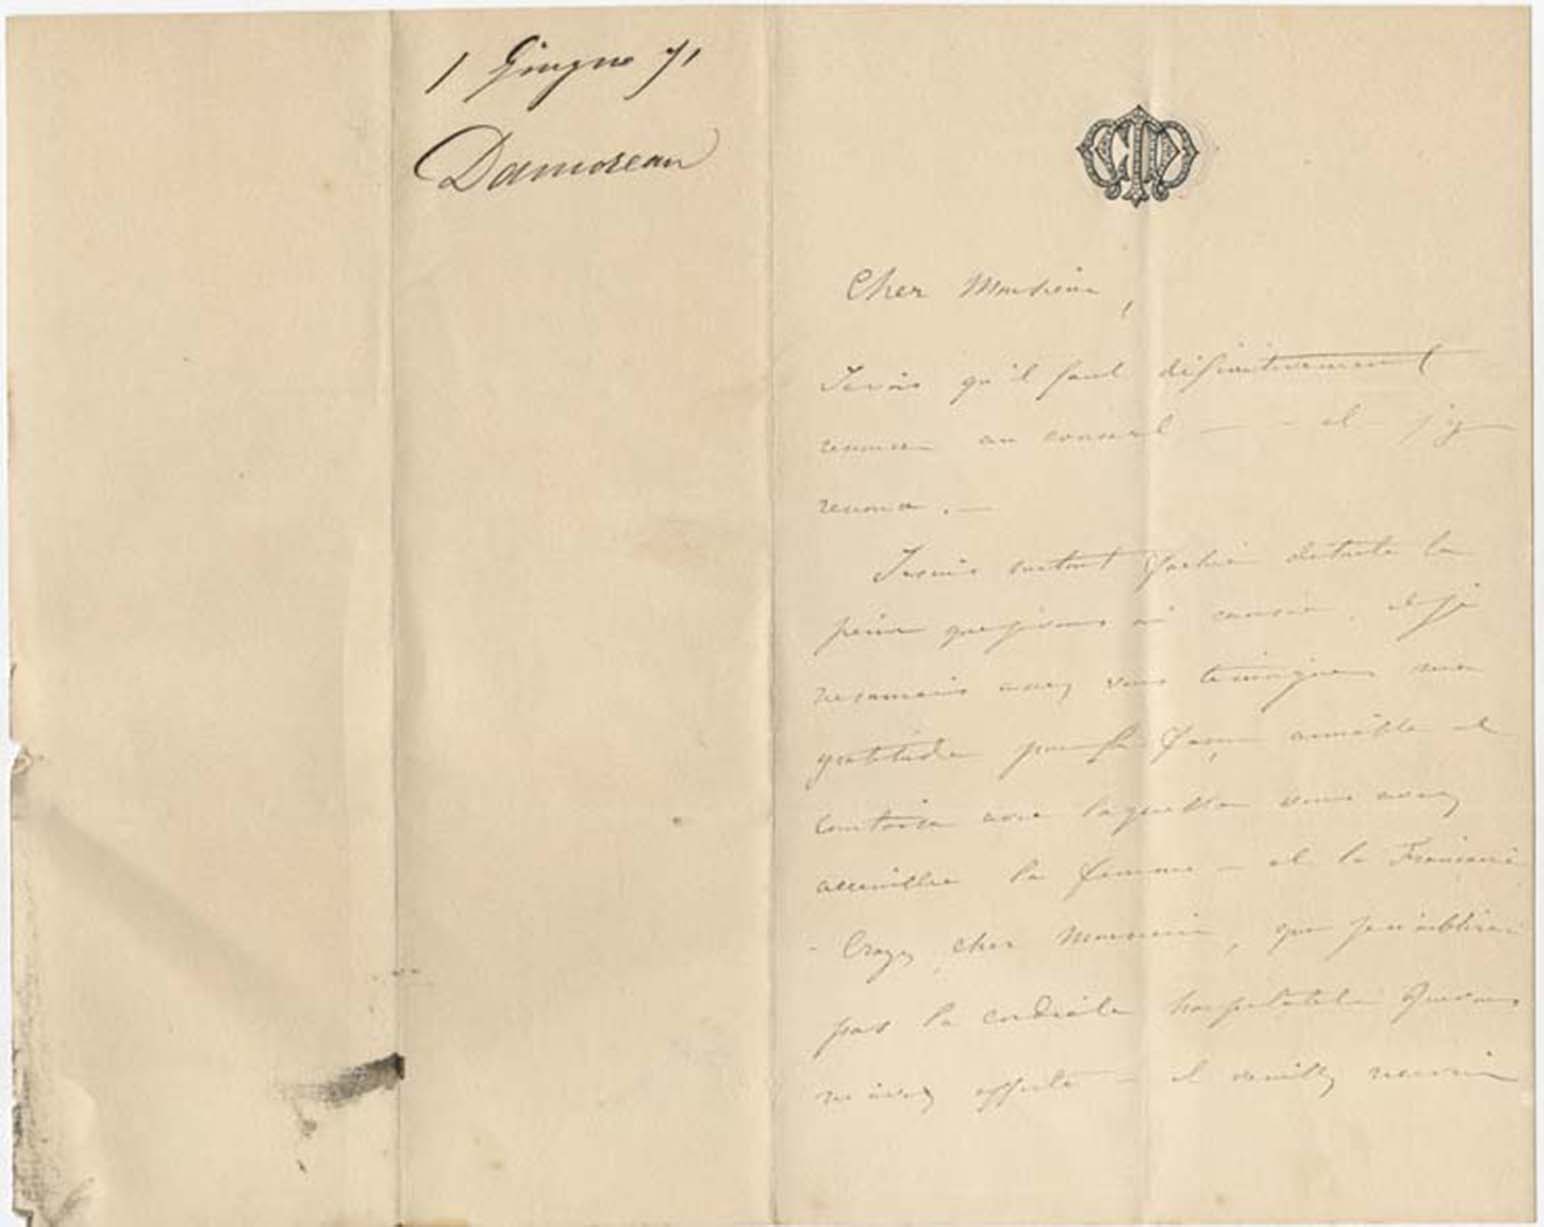 1 Giugno 71
Damoreau
Cher Monsieur,
Je vois qu'il faut définitivement
renoncer au conseil — - et j'y
renonce. —
Je suis surtout fachée de toute la
peine que je vous ai causée. et si
reconnais assez vous témoigner ma
gratitude pour la façon aimable et
courtoise avec laquelle vous avez
accueilli la femme — et la Française
- Croyez, cher Monsieur, que je n'oublierai
pas la cordiale hospitalité que vous
m'avez offerte — et veuillez recevoir